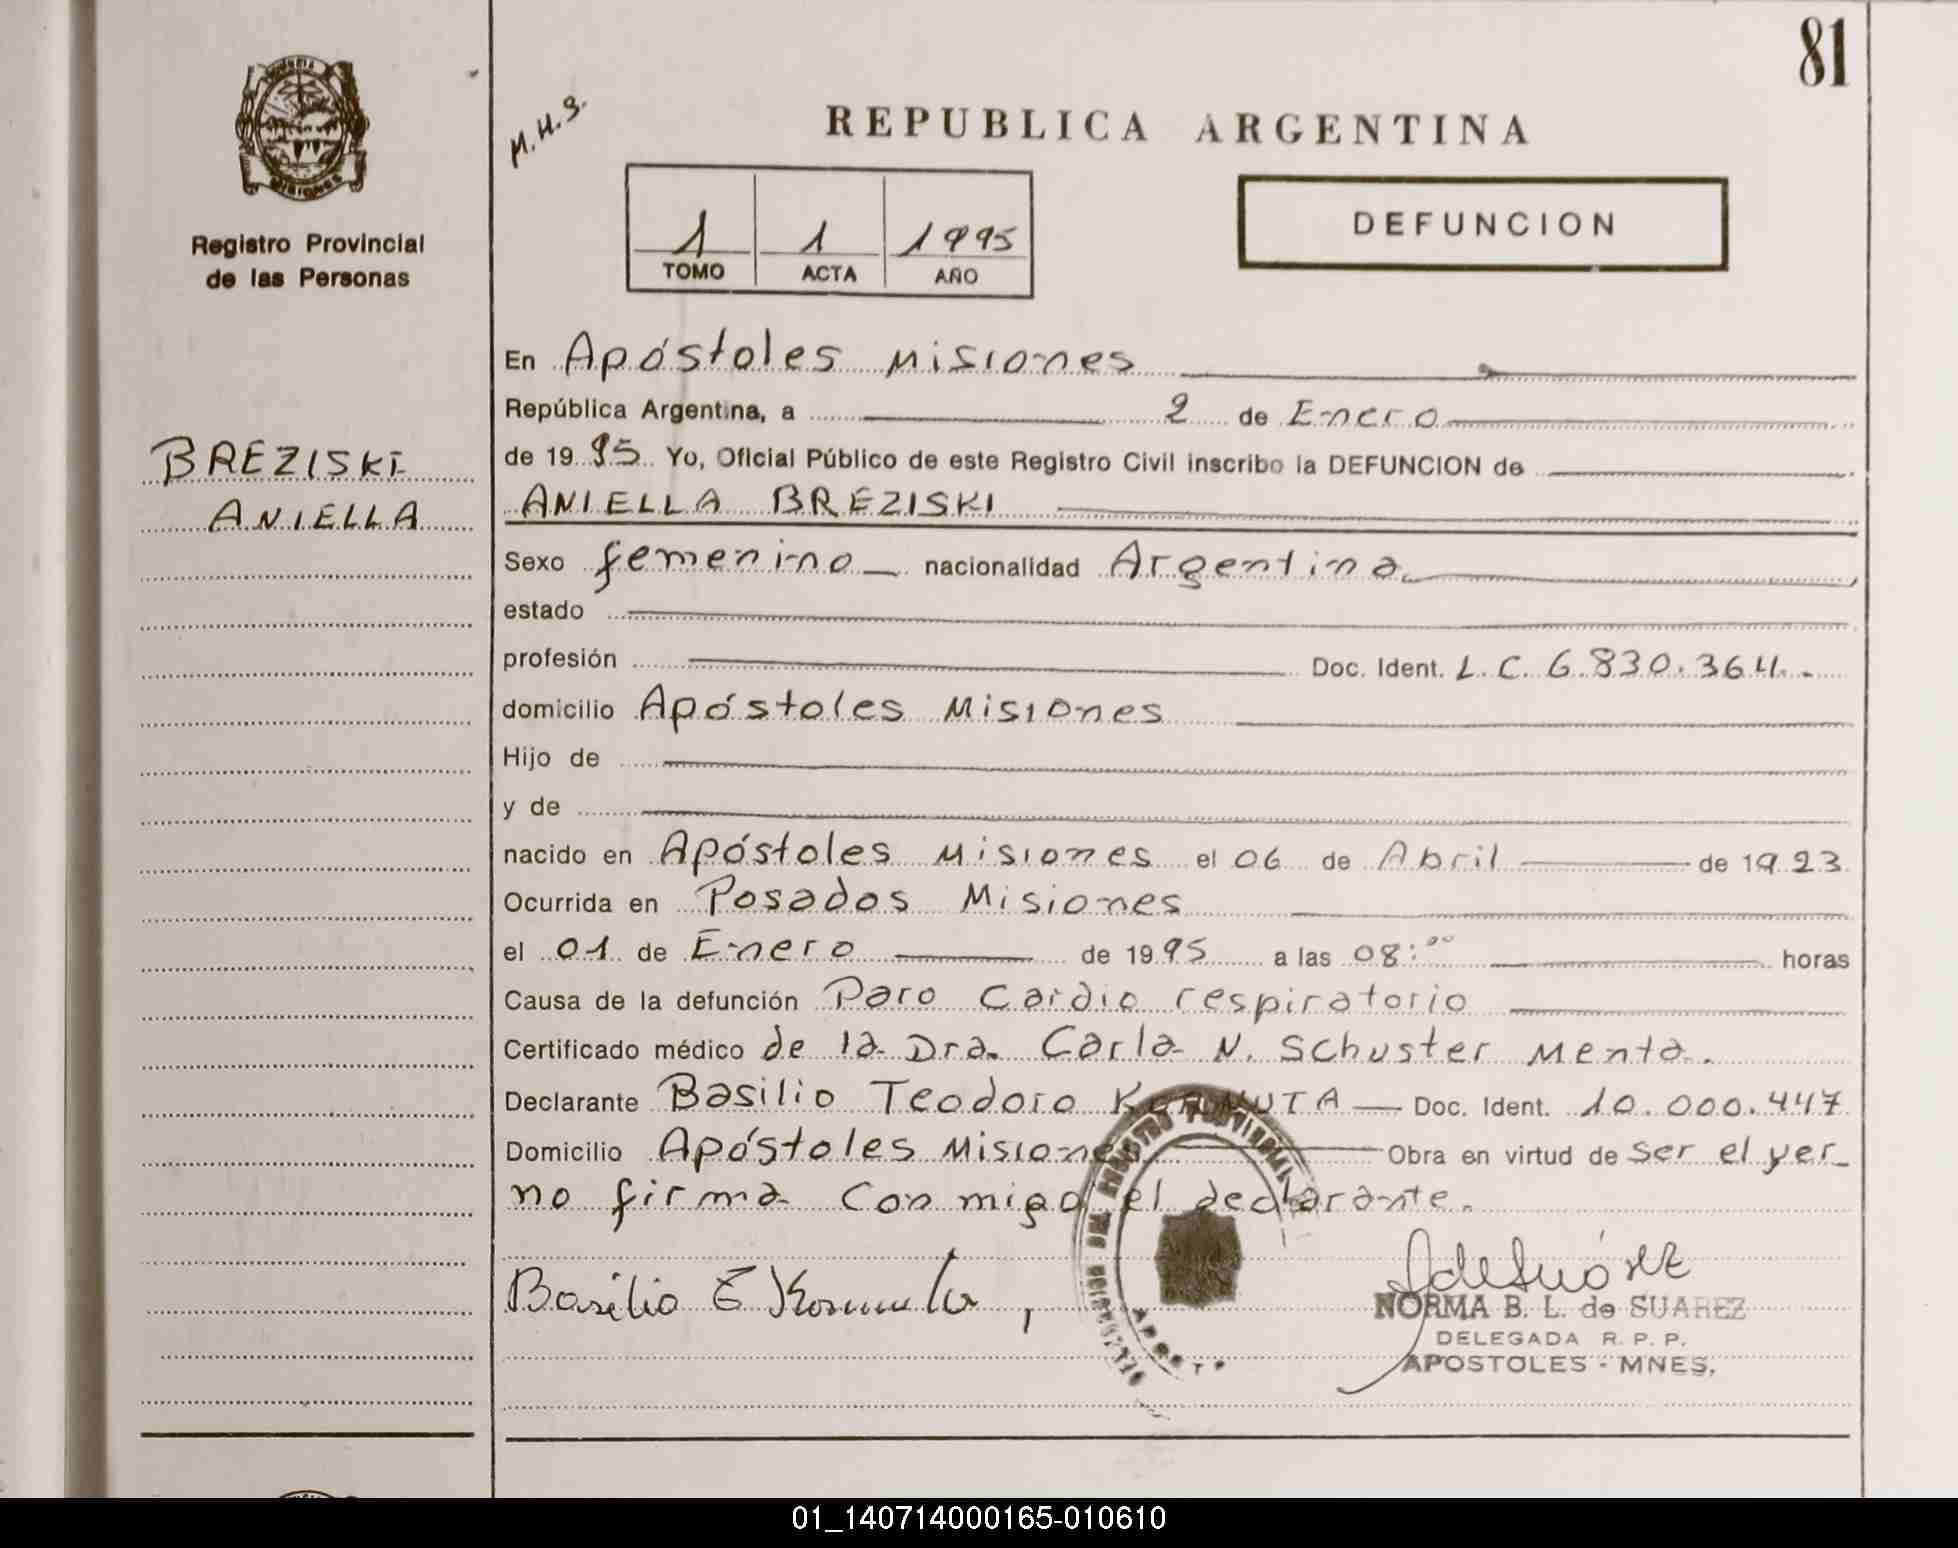 81
M.H.S.
REPUBLICA ARGENTINA
MISIONES
Registro Provincial
de las Personas
1 1 1995
TOMO ACTA AÑO
DEFUNCION
BREZISKI
ANIELLA
En Apóstoles Misiones
República Argentina, a 2 de Enero
de 1995 Yo, Oficial Público de este Registro Civil inscribo la DEFUNCION de
ANIELLA BREZISKI
Sexo femenino nacionalidad Argentina
estado
profesión Doc. Ident. L.C. 6.830.364.-
domicilio Apóstoles Misiones
Hijo de
y de
nacido en Apóstoles Misiones el 06 de Abril de 1923
Ocurrida en Posadas Misiones
el 01 de Enero de 1995 a las 08:00 horas
Causa de la defunción Paro Cardio respiratorio
Certificado médico de la Dra. Carla N. Schuster Menta.
Declarante Basilio Teodoro KORNUTA Doc. Ident. 10.000.447
Domicilio Apóstoles Misiones Obra en virtud de ser el yer_
no firma conmigo el declarante.
Basilio
NORMA B. L. de SUAREZ
DELEGADA R. P. P.
APOSTOLES - MNES.
01_140714000165-010610